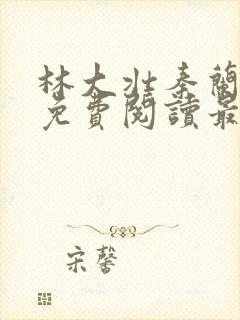 林大壯秦蘭
免費閱讀最
宋馨